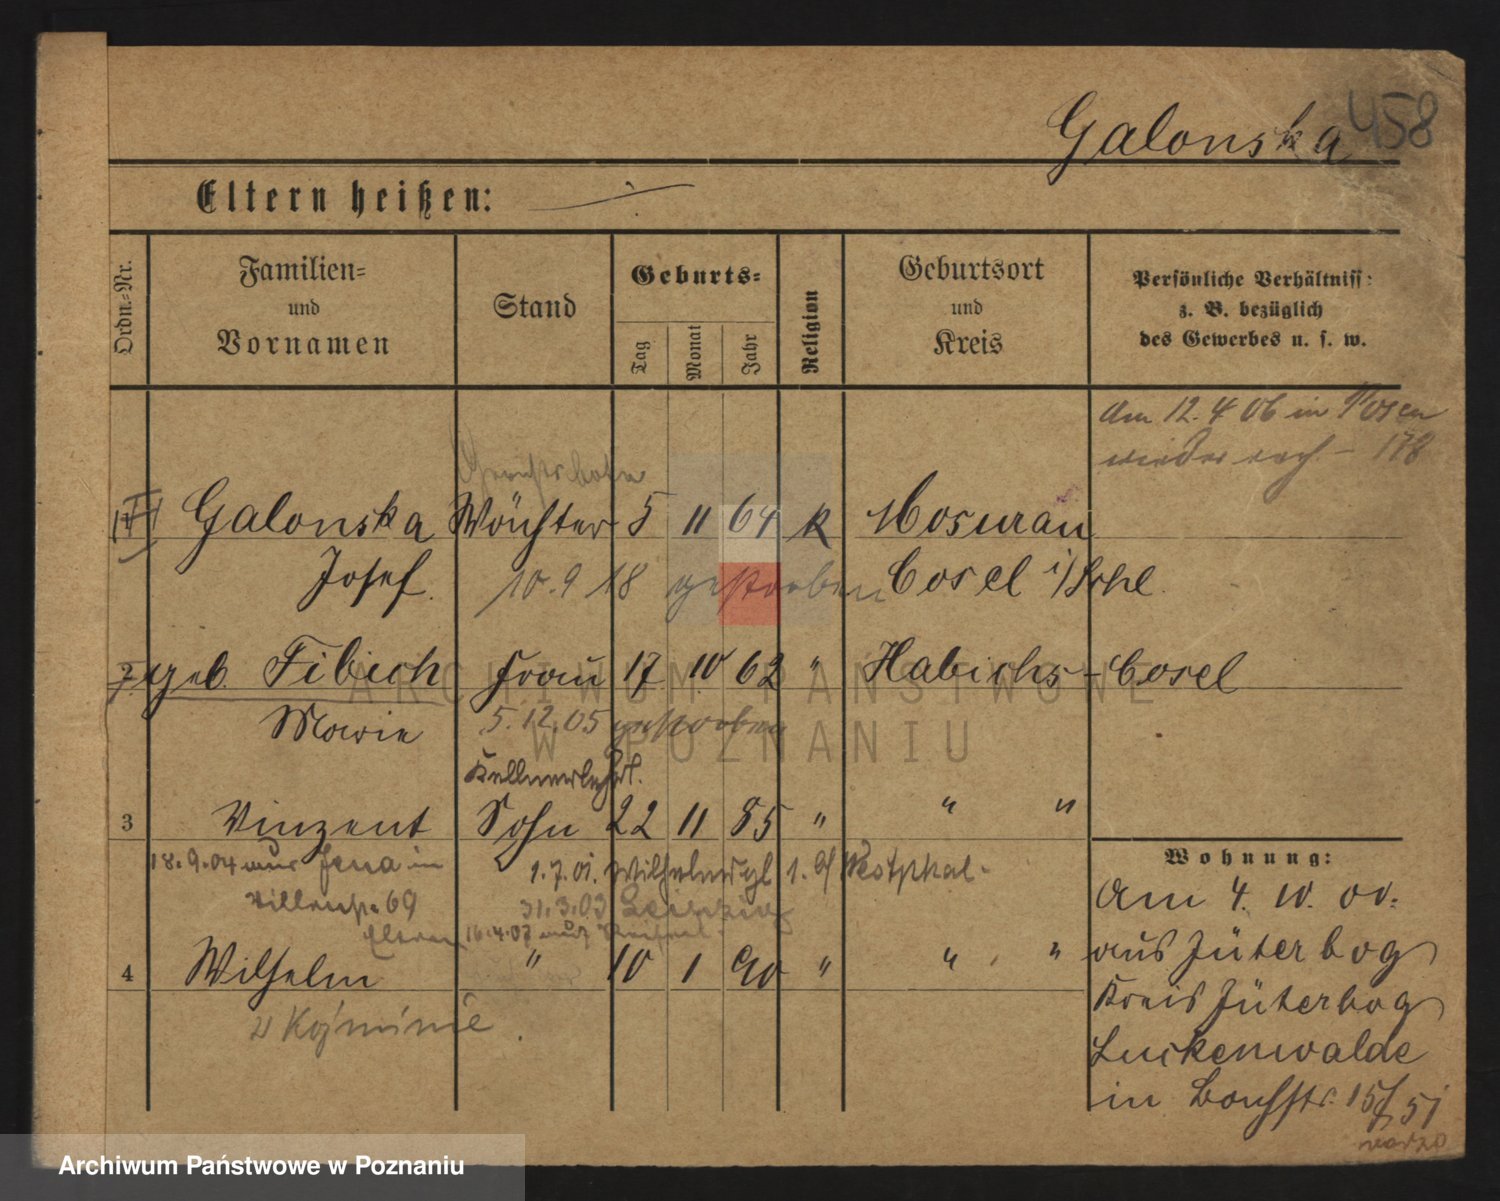 458
Galonska
Eltern heißen:
Ordn.-Nr.
Familien-
und
Vornamen
Stand
Geburts-
Tag
Monat
Jahr
Religion
Geburtsort
und
Kreis
Persönliche Verhältniss
z. B. bezüglich
des Gewerbes u. s. w.
Am 12.4.06 in Posen
wieder nach - 178
Galonska Wächter 5 11 64 k Mosurau
Josef. 10.9.18 gestorben Cosel i/Schl.
2 geb. Fibich Frau 17 10 62 " Habichs - Cosel
Marie 5.12.05 gestorben
Kellnerlehrl.
3 Vinzent Sohn 22 11 85 " " "
18.9.04 aus Jena in
69
1.7.01. 1. Westphal.
31.3.03 Leipzig
Eltern 16.4.07
4 Wilhelm " 10 1 90 " " "
Wohnung:
Am 4. 10. 00.
aus Jüterbog
Kreis Jüterbog
Luckenwalde
in
ARCHIWUM PAŃSTWOWE
W POZNANIU
Archiwum Państwowe w Poznaniu